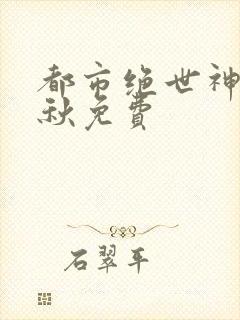 都市绝世神
秋免费
石翠平